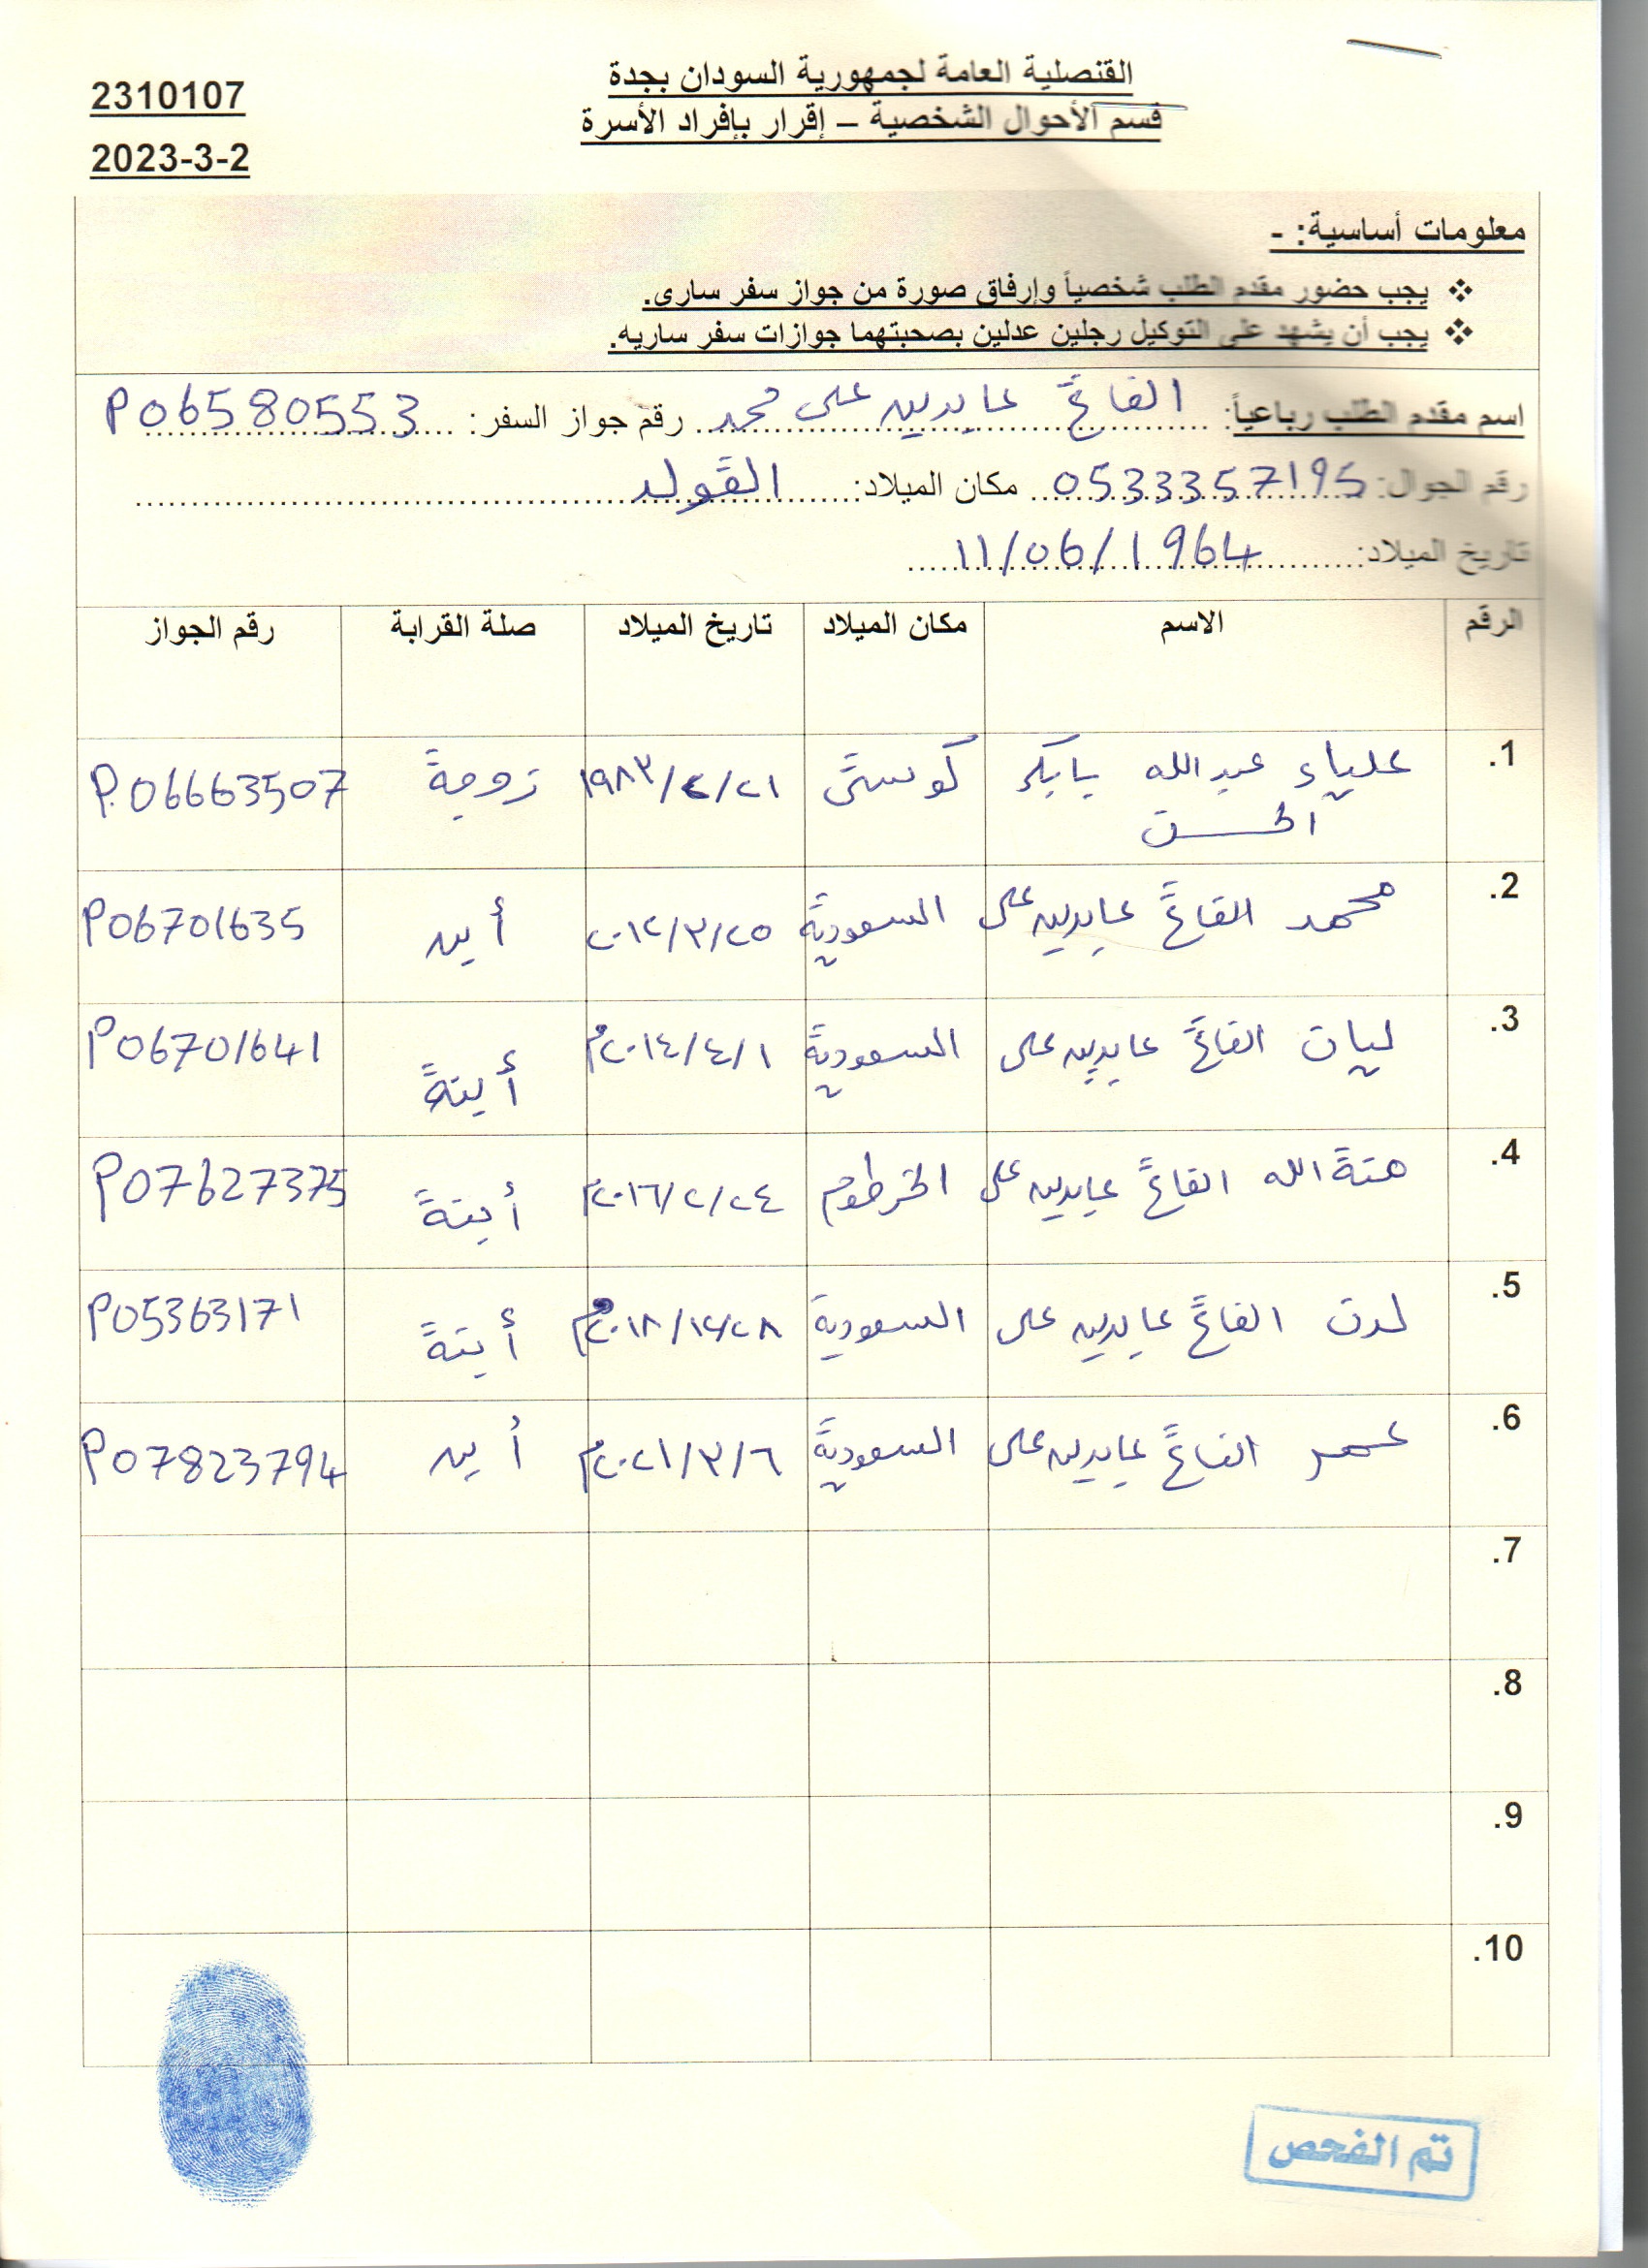 القنصلية العامة لجمهورية السودان بجدة
قسم الأحوال الشخصية – إقرار بإفراد الأسرة
2310107
2023-3-2
معلومات أساسية: -
❖ يجب حضور مقدم الطلب شخصياً وإرفاق صورة من جواز سفر سارى.
❖ يجب أن يشهد على التوكيل رجلين عدلين بصحبتهما جوازات سفر ساريه.
اسم مقدم الطلب رباعياً: الفاتح عابدين على محمد رقم جواز السفر: P06580553
رقم الجوال: 0533357195 مكان الميلاد: القولد
تاريخ الميلاد: 11/06/1964
الرقم الاسم مكان الميلاد تاريخ الميلاد صلة القرابة رقم الجواز
1. علياء عبد الله بابكر كوستى ١٩٨٣/٤/٢١ زوجة P.06663507
الحسن
2. محمد الفاتح عابدين على السعودية ٢٠١٢/٣/٢٥ أبن P06701635
3. ليان الفاتح عابدين على السعودية ٢٠١٤/٤/١م أبنة P06701641
4. هبة الله الفاتح عابدين على الخرطوم ٢٠١٦/٢/٢٤م أبنة P07627375
5. لدن الفاتح عابدين على السعودية ٢٠١٨/١٢/٢٨م أبنة P05363171
6. عمر الفاتح عابدين على السعودية ٢٠٢١/٣/٦م أبن P07823794
7.
8.
9.
10.
تم الفحص